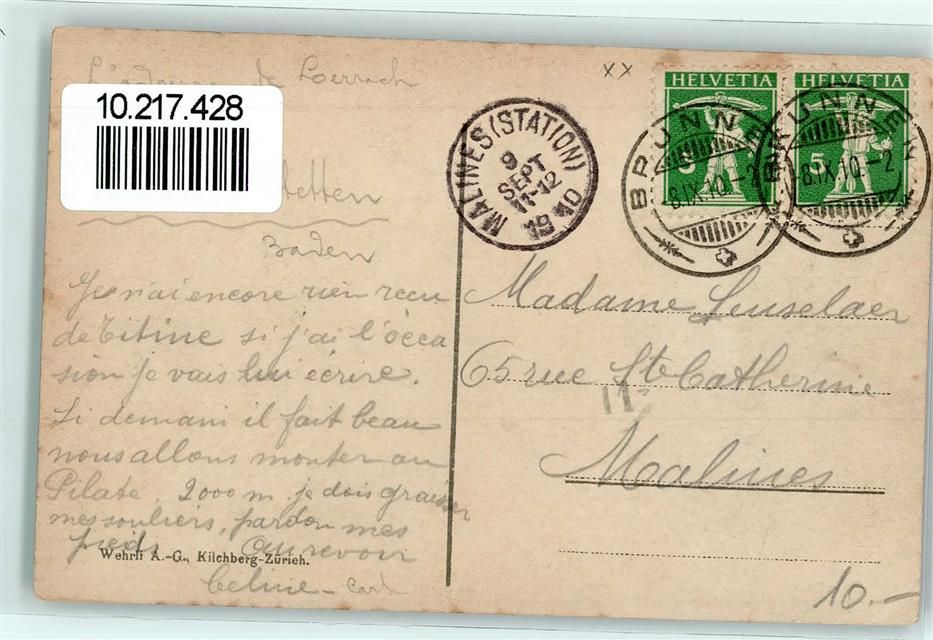 L'adresse de Loerrach
10.217.428
stetten
Baden
Je n'ai encore rien reçu
de Titine si j'ai l'occa
sion je vais lui écrire.
Si demani il fait beau
nous allons monter au
Pilate. 2000 m. je dois graisser
mes souliers, pardon mes
pieds. Au revoir
Celine - Carl
Wehrli A.-G., Kilchberg-Zürich.
MALINES (STATION)
9
SEPT
11-12
1910
XX
HELVETIA
HELVETIA
5
5
BRUNNEN
8.IX.10.-2
BRUNNEN
8.IX.10.-2
Madame
65 rue Ste Catherine
11
Malines
10.-